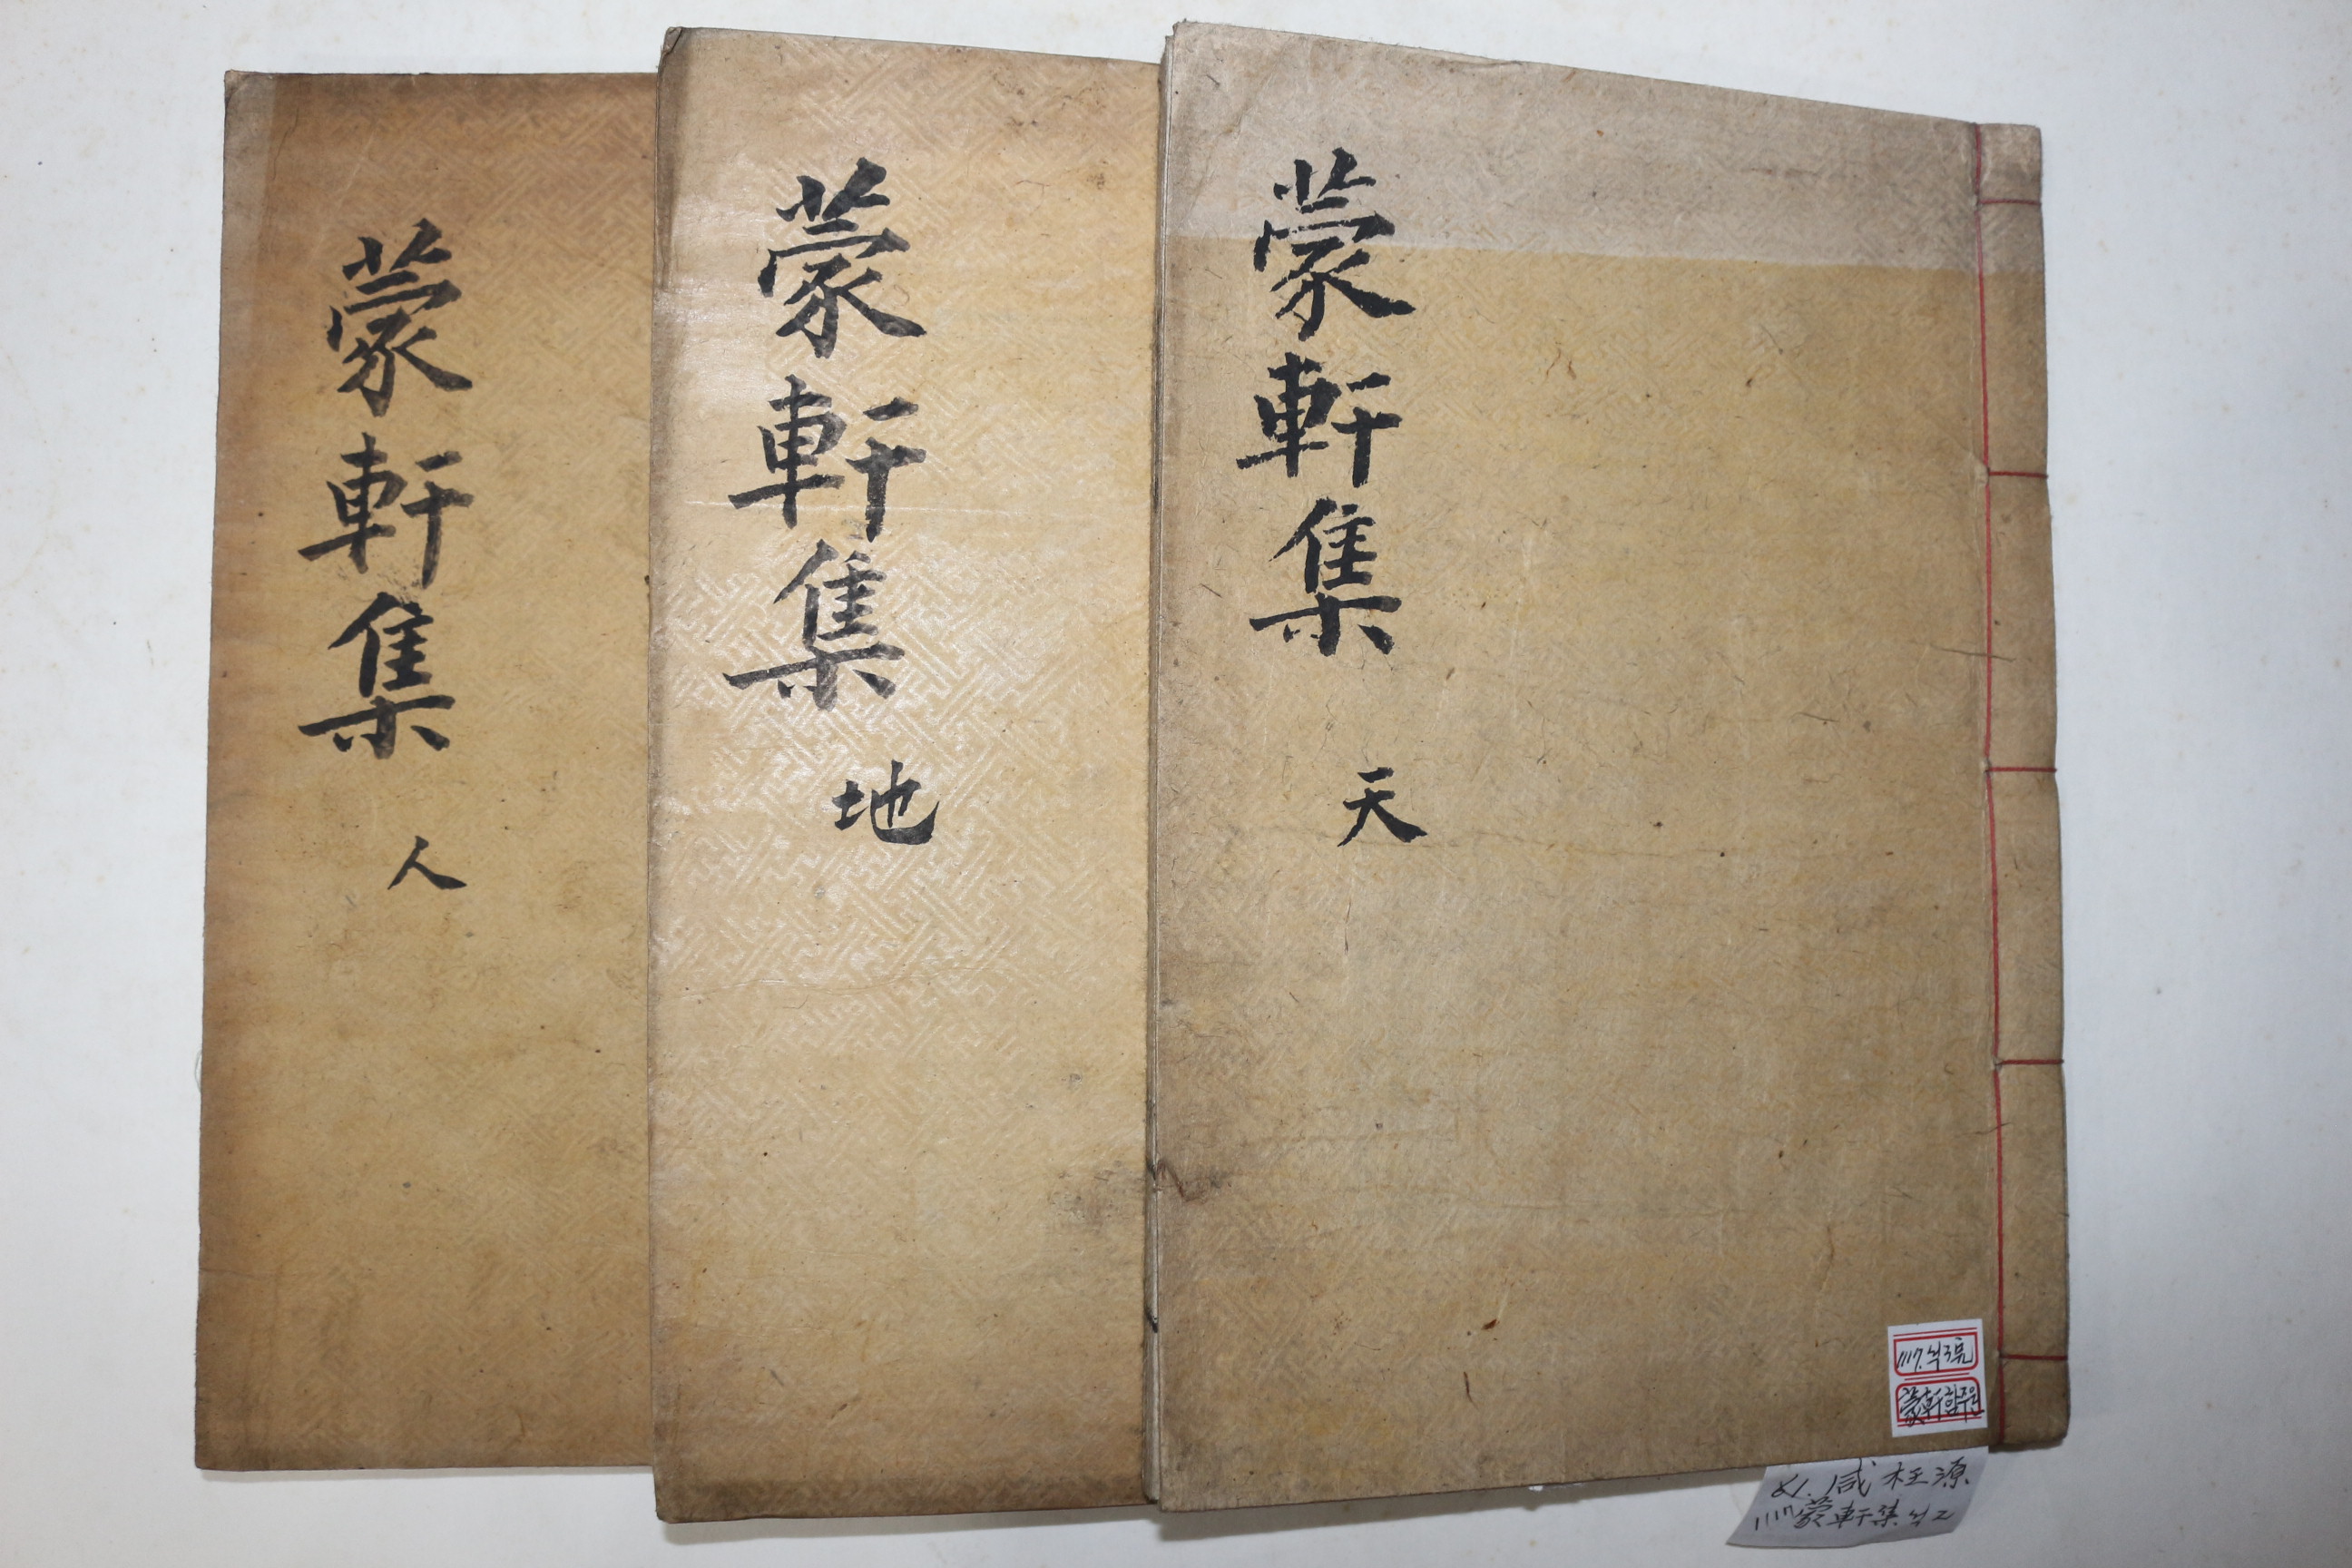 蒙軒集 天
蒙軒集 地
蒙軒集 人
蒙軒
咸
源
蒙軒集